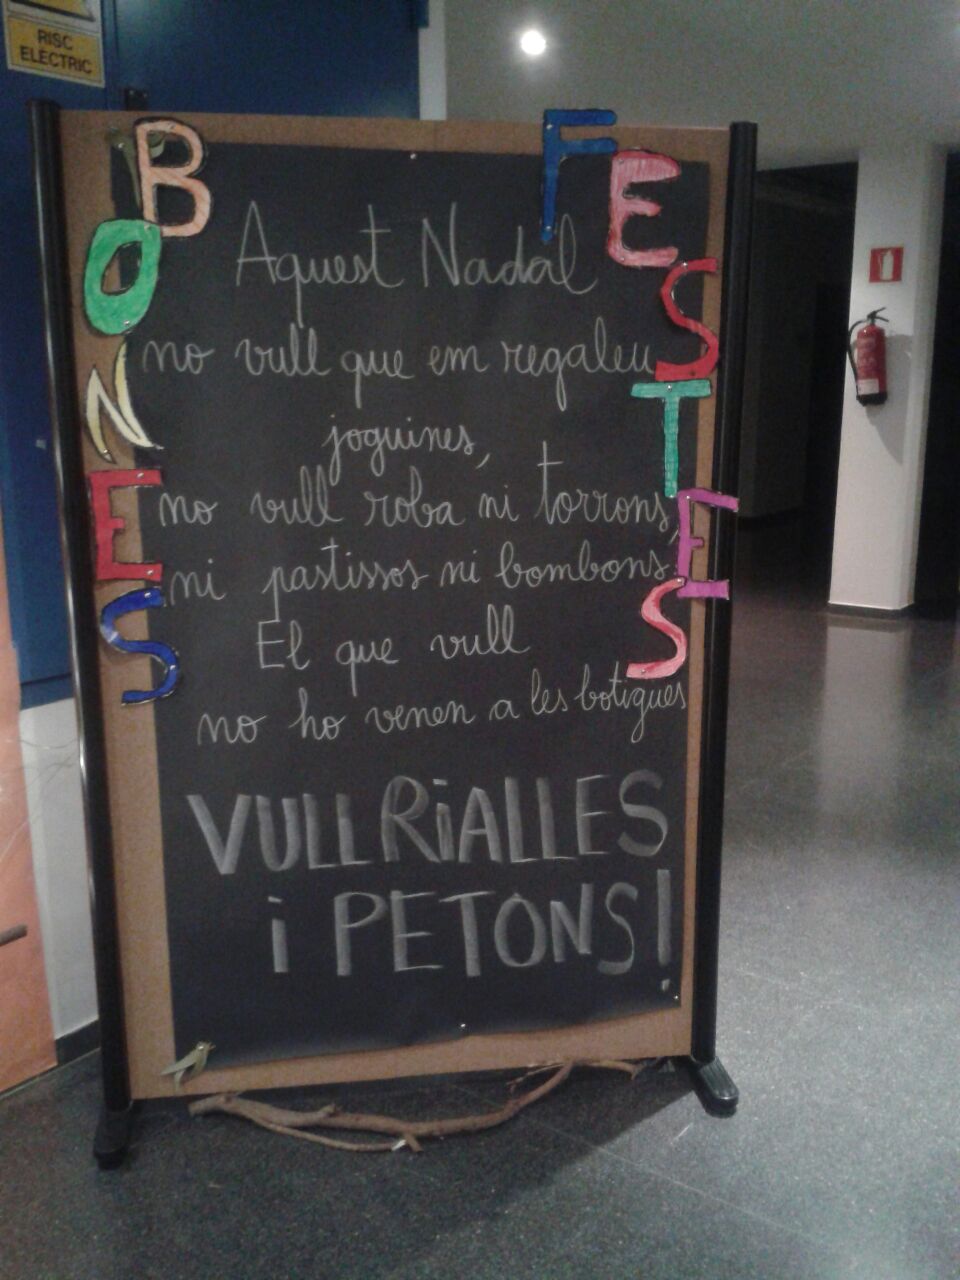 RISC
ELÈCTRIC
BONES
FESTES
Aquest Nadal
no vull que em regaleu
joguines,
no vull roba ni torrons,
ni pastissos ni bombons.
El que vull
no ho venen a les botigues
VULL RiALLES
i PETONS!